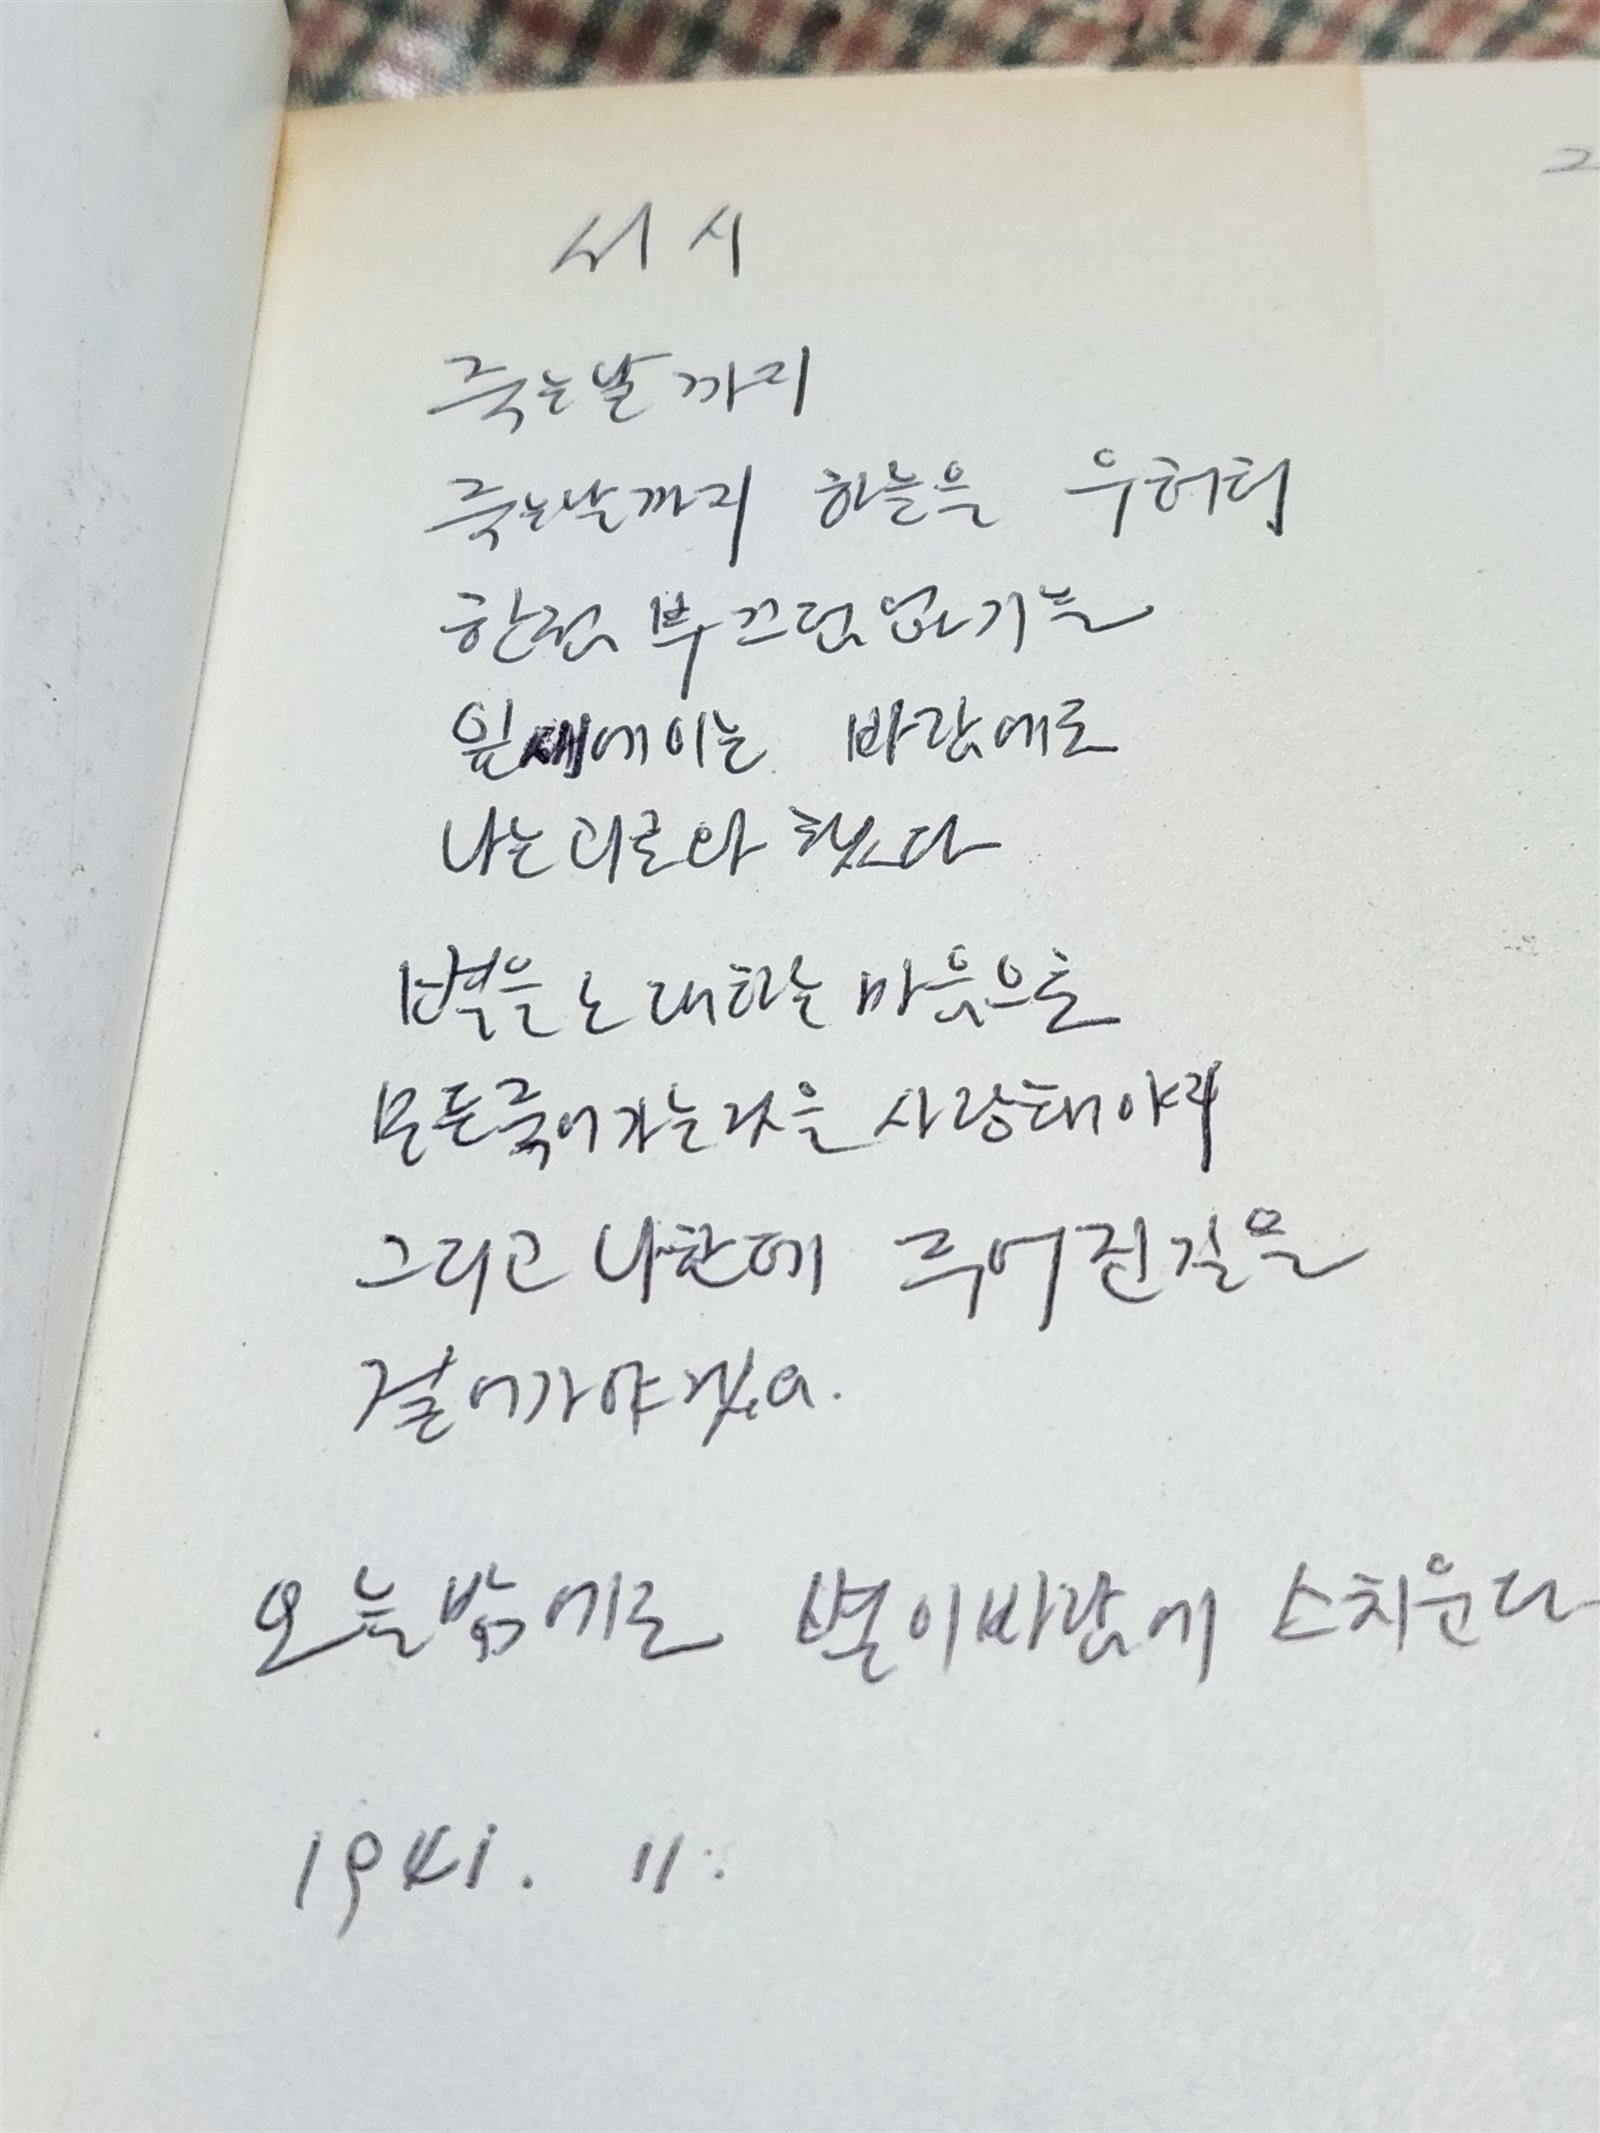 서시
죽는날까지
죽는날까지 하늘을 우러러
한점 부끄럼없기를
잎새에이는 바람에도
나는괴로와 했다
별을노래하는 마음으로
모든죽어가는것을 사랑해야지
그리고 나한테 주어진길을
걸어가야겠다.
오늘밤에도 별이바람에 스치운다
1941. 11.